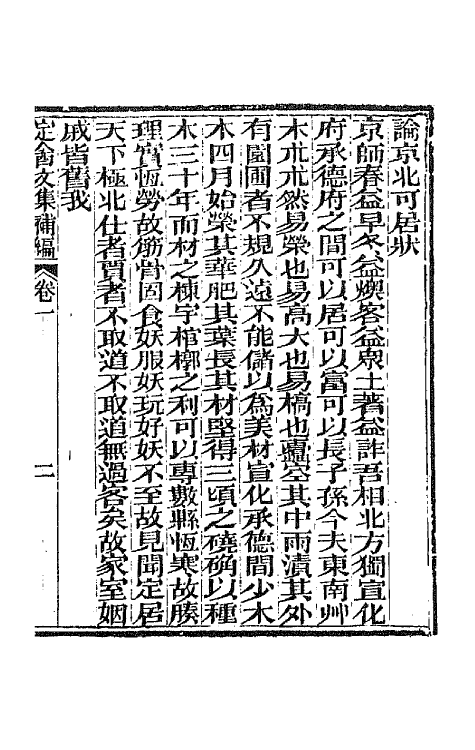 論京北可居狀
京師春益早冬益燠客益衆土著益詐吾相北方獨宣化
府承德府之間可以居可以富可以長子孫今夫東南艸
木朮朮然易榮也易高大也易槁也蠹空其中雨漬其外
有園圃者不規久遠不能儲以為美材宣化承德間少木
木四月始榮其華肥其葉長其材堅得三頃之磽确以種
木三十年而材之棟宇棺槨之利可以專數縣恆寒故腠
理實恆勞故筋骨固食妖服妖玩好妖不至故見聞定居
天下極北仕者賈者不取道不取道無過客矣故家室姻
戚皆舊我
定盦文集補編
卷一
二